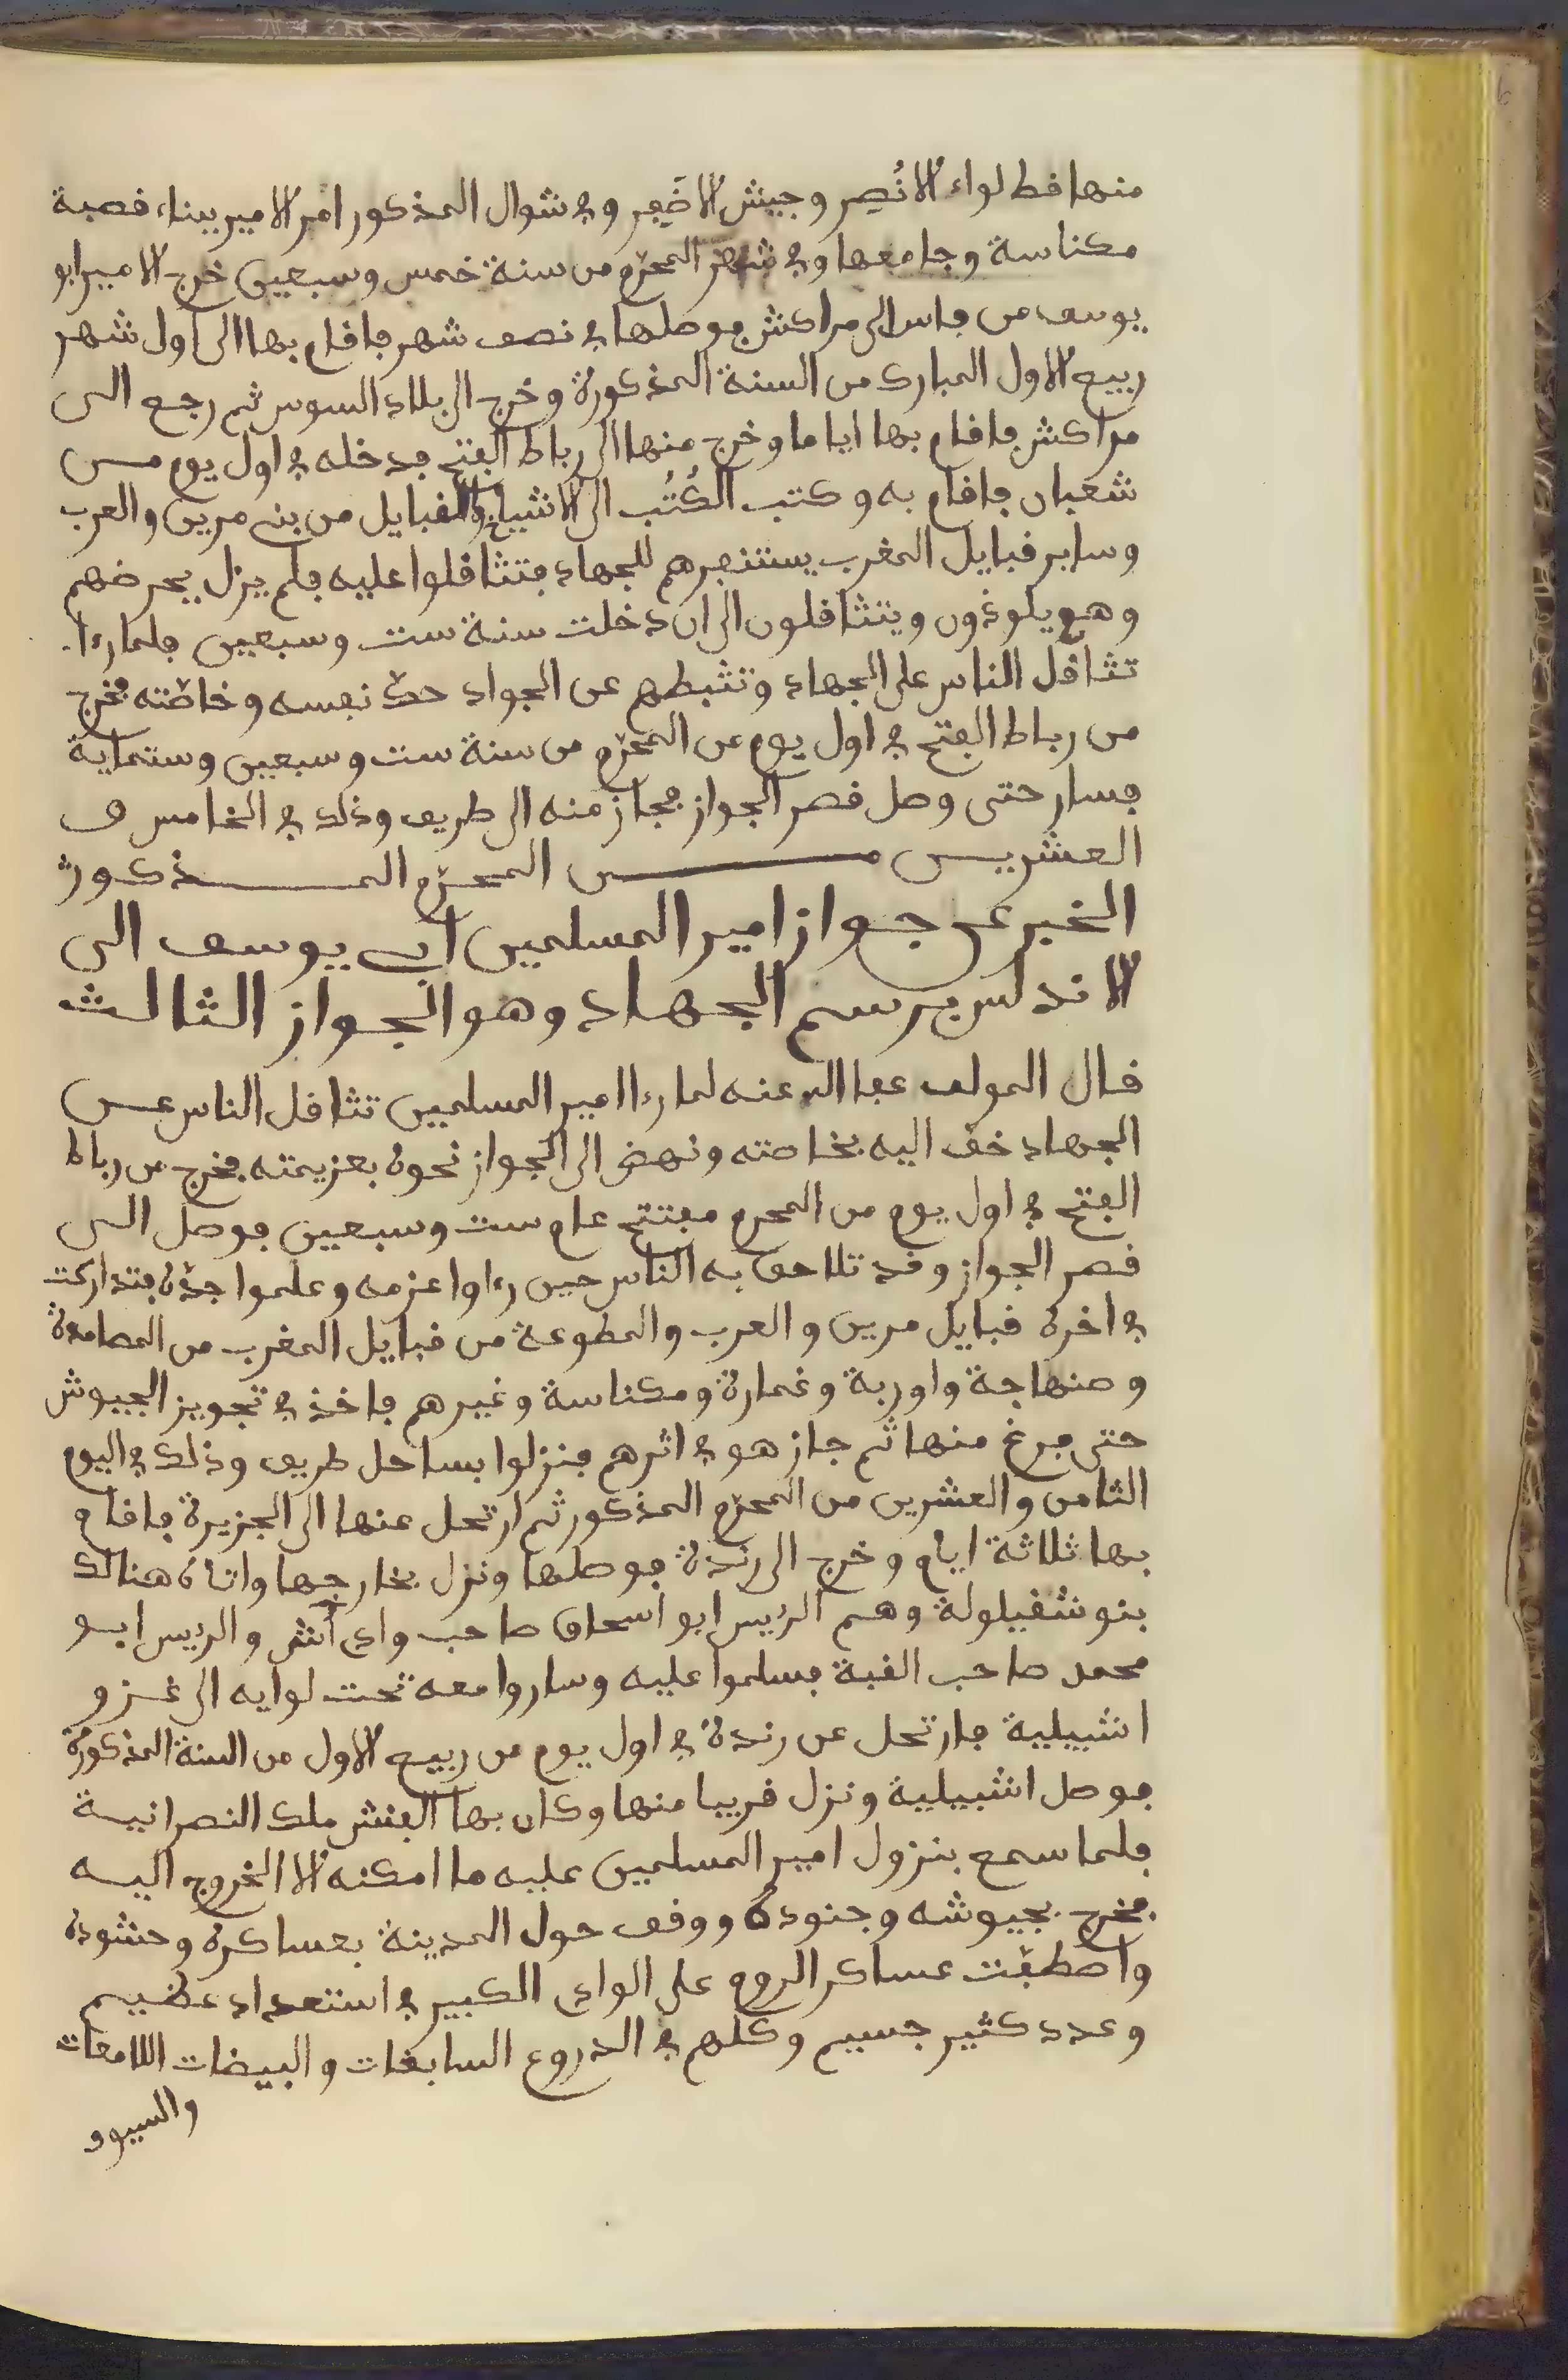 منها قط لواء الا نُصِر وجيش الا ضَفِر وفي شوال المذكور امر الامير ببناء قصبة
مكناسة وجامعها وفي شهر المحرّم من سنة خمس وسبعين خرج الامير ابو
يوسف من فاس الى مراكش فوصلها في نصف شهر فاقام بها الى اول شهر
ربيع الاول المبارك من السنة المذكورة وخرج الى بلاد السوس ثم رجع الى
مراكش فاقام بها اياما وخرج منها الى رباط الفتح فدخله في اول يوم من
شعبان فاقام به وكتب الكُتُب الى الاشياخ والقبايل من بني مرين والعرب
وساير قبايل المغرب يستنفرهم للجهاد فتثاقلوا عليه فلم يزل يحرضهم
وهم يلوذون ويتثاقلون الى ان دخلت سنة ست وسبعين فلما رءا
تثاقل الناس على الجهاد وتثبطهم عن الجواد حدّ نفسه وخاصّته فخرج
من رباط الفتح في اول يوم من المحرّم من سنة ست وسبعين وستماية
فسار حتى وصل قصر الجواز فجاز منه الى طريف وذلك في الخامس و
العشرين من المحرّم المذكور
الخبر عن جواز امير المسلمين ابي يوسف الى
الاندلس برسم الجهاد وهو الجواز الثالث
قال المولف عفا الله عنه لما رءا امير المسلمين تثاقل الناس عن
الجهاد خف اليه بخاصته ونهض الى الجواز نحوه بعزيمته فخرج من رباط
الفتح في اول يوم من المحرم مفتتح عام ست وسبعين فوصل الى
قصر الجواز وقد تلاحق به الناس حين رءاوا عزمه وعلموا جدّه فتداركت
في اخره قبايل مرين والعرب والمطوعة من قبايل المغرب من المصامدة
وصنهاجة واوربة وغمارة ومكناسة وغيرهم فاخذ في تجويز الجيوش
حتى فرغ منها ثم جاز هو في اثرهم فنزلوا بساحل طريف وذلك في اليوم
الثامن والعشرين من المحرّم المذكور ثم ارتحل عنها الى الجزيرة فاقام
بها ثلاثة ايام وخرج الى رندة فوصلها ونزل بخارجها واتاه هنالك
بنو شقيلولة وهم الرئيس ابو اسحاق صاحب وادي آش والرئيس ابو
محمد صاحب القبة فسلموا عليه وساروا معه تحت لوايه الى غزو
اشبيلية فارتحل عن رندة في اول يوم من ربيع الاول من السنة المذكورة
فوصل اشبيلية ونزل قريبا منها وكان بها الفنش ملك النصرانية
فلما سمع بنزول امير المسلمين عليه ما امكنه الا الخروج اليه
فخرج بجيوشه وجنوده ووقف حول المدينة بعساكره وحشوده
واصطفّت عساكر الروم على الوادي الكبير في استعداد عظيم
وعدد كثير جسيم وكلهم في الدروع السابغات والبيضات اللامعات
والسيوف